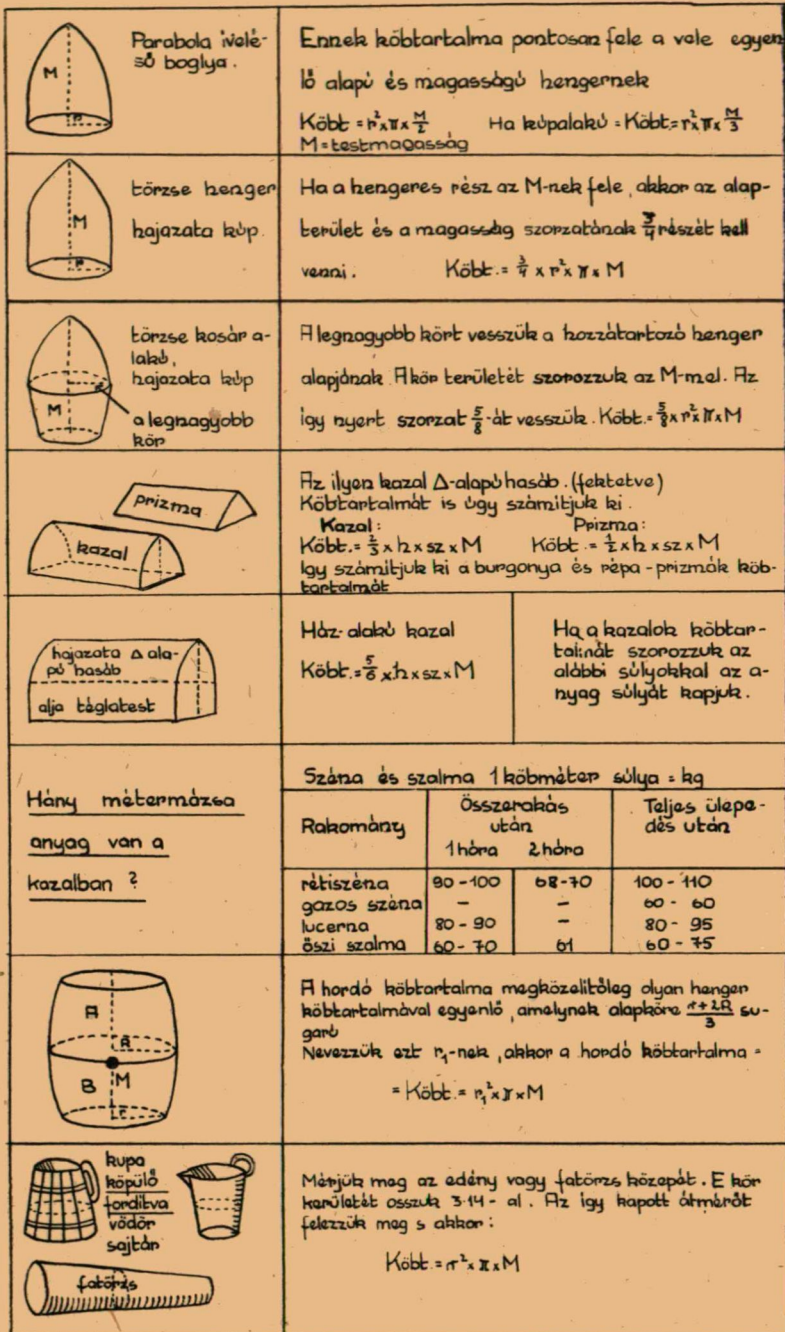 Parabola ívelé-
sű boglya.
M
r
Ennek köbtartalma pontosan fele a vele egyen
lő alapú és magasságú hengernek
Köbt = r²xπx M/2 Ha kúpalakú = Köbt.= r²xπx M/3
M = testmagasság
törzse henger
hajazata kúp.
M
r
Ha a hengeres rész az M-nek fele, akkor az alap-
terület és a magasság szorzatának 3/4 részét kell
venni. Köbt.= 3/4 x r²x π x M
törzse kosár a-
lakú,
hajazata kúp
a legnagyobb
kör
M
A legnagyobb kört vesszük a hozzátartozó henger
alapjának. A kör területét szorozzuk az M-mel. Az
így nyert szorzat 5/8-át vesszük. Köbt.= 5/8 x r²x π x M
prizma
kazal
Az ilyen kazal Δ-alapú hasáb. (fektetve)
Köbtartalmát is úgy számítjuk ki.
Kazal: Prizma:
Köbt.= 2/3 x h x sz x M Köbt.= 1/2 x h x sz x M
Igy számítjuk ki a burgonya és répa-prizmák köb-
tartalmát
hajazata Δ ala-
pú hasáb
alja téglatest
Ház-alakú kazal
Köbt.= 5/6 x h x sz x M
Ha a kazalok köbtar-
talmát szorozzuk az
alábbi súlyokkal az a-
nyag súlyát kapjuk.
Hány métermázsa
anyag van a
kazalban ?
Széna és szalma 1 köbméter súlya = kg
Rakomány Összerakás után Teljes ülepe-
dés után
1 hóra 2 hóra
rétiszéna 90-100 68-70 100-110
gazos széna - - 60-60
lucerna 80-90 - 80-95
őszi szalma 60-70 61 60-75
A
R
B
M
r
A hordó köbtartalma megközelítőleg olyan henger
köbtartalmával egyenlő, amelynek alapköre r+2R/3 su-
garú
Nevezzük ezt r₁-nek, akkor a hordó köbtartalma =
= Köbt.= r₁²x π x M
kupa
köpülő
fordítva
vödör
sajtár
fatörzs
Mérjük meg az edény vagy fatörzs közepét. E kör
kerületét osszuk 3·14-al. Az így kapott átmérőt
felezzük meg s akkor:
Köbt.= r²x π x M